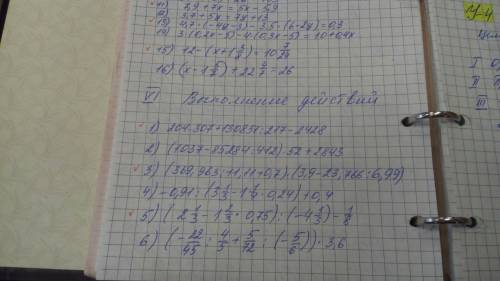 11) 2,9+7x = 5x + 5,9
12) 3,7+5x = 7x+13
13) 4,7·(-4y-3)-3,5·(6-2y) = 0,3
14) 3·(0,2x-5)-4·(0,3x-5) = 10+0,4x
15) 12-(x+1 5/8) = 10 7/24
16) (x-1 5/8)+22 4/7=26
VI Выполнение действий
1) 204·307+130851:217-2428
2) (1037-85284:412)·52+2843
3) (369,963:11,11+0,7):(3,9-23,766:6,99)
4) -0,91:(3 1/4-1 1/4·0,24)+0,4
5) (2 1/3-1 2/3·0,75):(-4 1/3)-1/8
6) (-22/45:4/3+5/12:(-5/6))·3,6
У-4
I
II
III